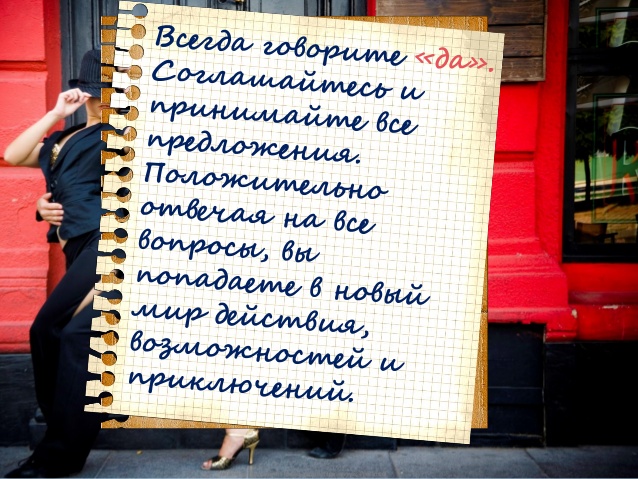 Всегда говорите «да».
Соглашайтесь и
принимайте все
предложения.
Положительно
отвечая на все
вопросы, вы
попадаете в новый
мир действия,
возможностей и
приключений.